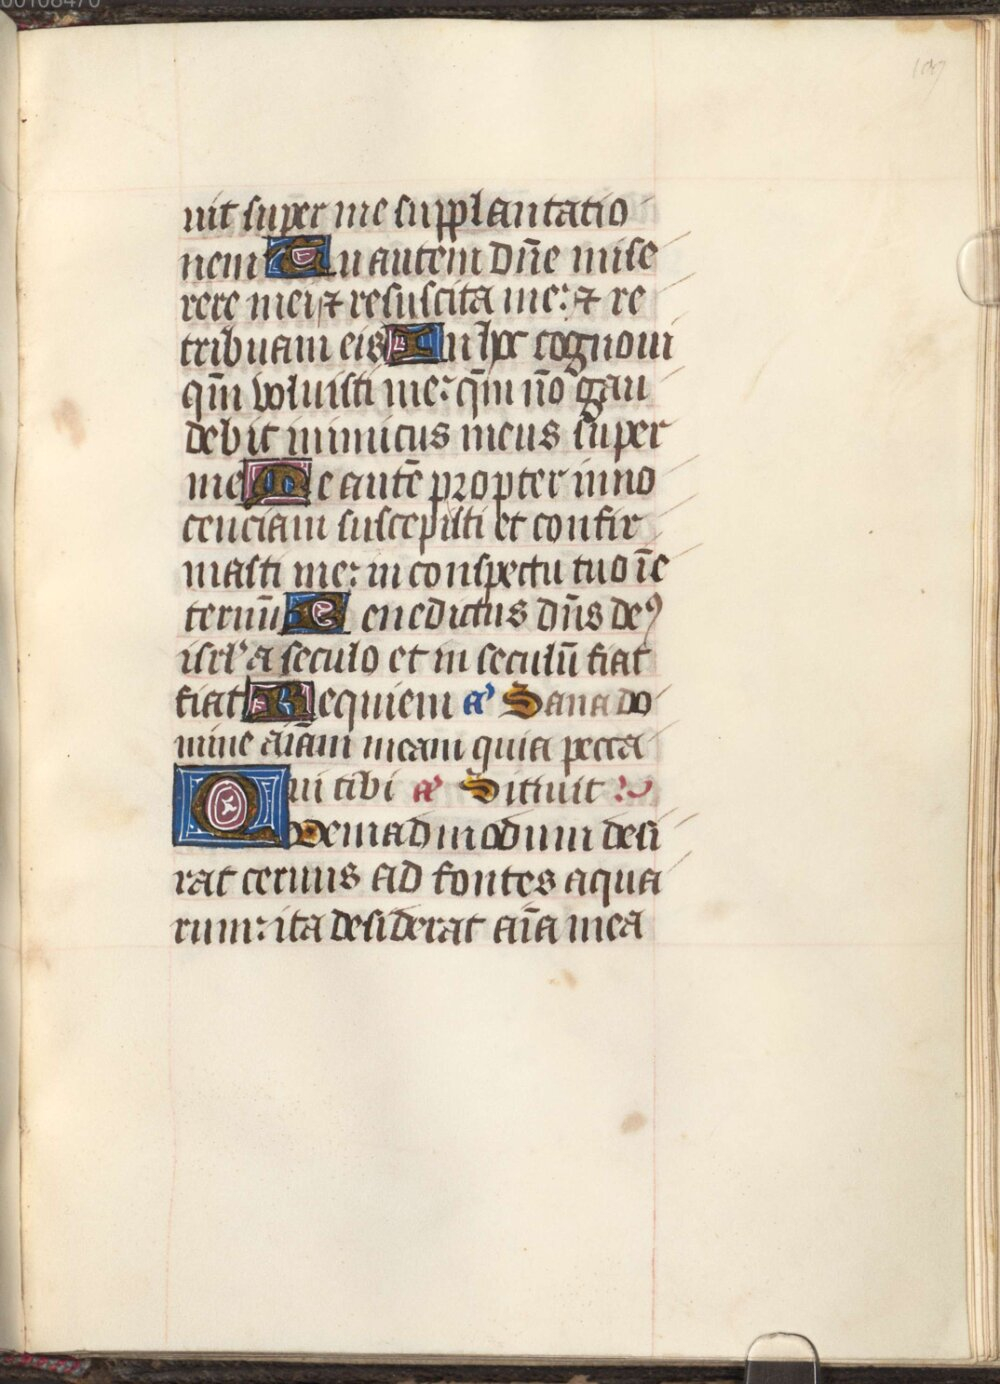 00108470
107
uit super me supplantatio
nem Tu autem dn̄e mise
rere mei ⁊ resuscita me: ⁊ re
tribuam eis In hoc cognoui
qm̄ voluisti me: qm̄ nō gau
debit inimicus meus super
me Me autē propter inno
cenciam suscepisti et confir
masti me: in conspectu tuo ī e
ternū Benedictus dn̄s deꝰ
isrl' a seculo et in seculū fiat
fiat Requiem a' Sana do
mine aīam meam quia pecca
ui tibi a' Sitiuit ps
Quemadmodum desi
rat ceruus ad fontes aqua
rum: ita desiderat aīa mea